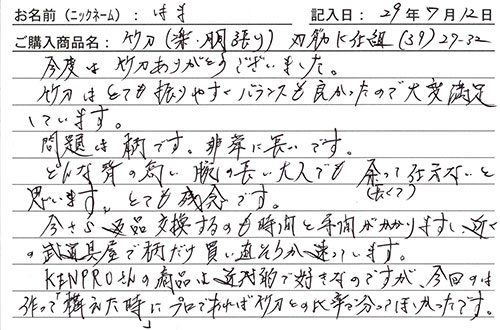 お名前（ニックネーム）： はま 記入日： 29年7月12日
ご購入商品名： 竹刀（楽・胴張り）刃筋に仕組（39）27-32
今度は竹刀ありがとうございました。
竹刀はとても振りやすくバランスも良かったので大変満足
しています。
問題は柄です。非常に長いです。
どんな背の高い腕の長い大人でも余って仕方ないと
（長くて）
思います。とても残念です。
今さら返品交換するのも時間と手間がかかりますし、近く
の武道具屋で柄だけ買い直そうか迷っています。
KENPROさんの商品は近代的で好きなのですが、今回のは
作って「構えた時」にプロであれば竹刀との比率で分ってほしかったです。